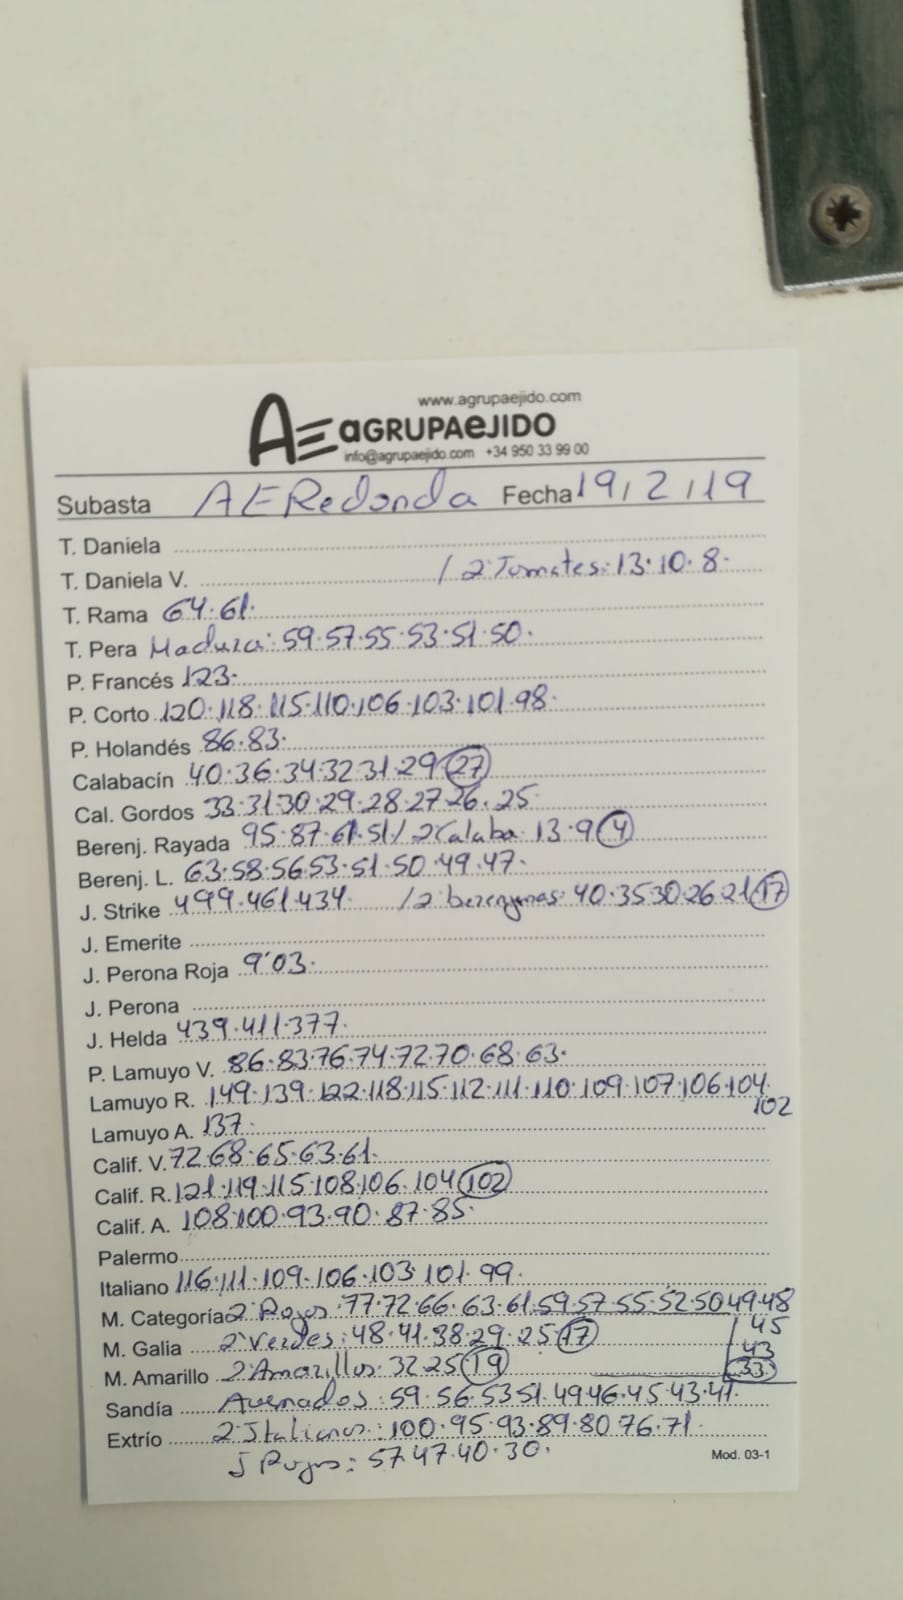 www.agrupaejido.com
AE aGRUPAeJIDO
info@agrupaejido.com +34 950 33 99 00
Subasta AE Redonda Fecha 19/2/19
T. Daniela
T. Daniela V. / 2ª Tomates: 13.10.8.
T. Rama 64.61.
T. Pera Madura: 59.57.55.53.51.50.
P. Francés 123.
P. Corto 120.118.115.110.106.103.101.98.
P. Holandés 86.83.
Calabacín 40.36.34.32.31.29 27
Cal. Gordos 33.31.30.29.28.27.26.25
Berenj. Rayada 95.87.61.51 / 2ª Calaba. 13.9 4
Berenj. L. 63.58.56.53.51.50.49.47.
J. Strike 499.461.434. / 2ª berenjenas: 40.35.30.26.21 17
J. Emerite
J. Perona Roja 9'03.
J. Perona
J. Helda 439.411.377.
P. Lamuyo V. 86.83.76.74.72.70.68.63.
Lamuyo R. 149.139.122.118.115.112.111.110.109.107.106.104.
102
Lamuyo A. 137.
Calif. V. 72.68.65.63.61.
Calif. R. 121.119.115.108.106.104 102
Calif. A. 108.100.93.90.87.85.
Palermo
Italiano 116.111.109.106.103.101.99.
M. Categoría 2ª Rojos: 77.72.66.63.61.59.57.55.52.50.49.48
45
M. Galia 2ª Verdes: 48.41.38.29.25 17
43
M. Amarillo 2ª Amarillos: 32.25 19
33
Sandía Asurnados: 59.56.53.51.49.46.45.43.41.
Extrío 2ª Italianos: 100.95.93.89.80.76.71.
J Rojos: 57.47.40.30.
Mod. 03-1